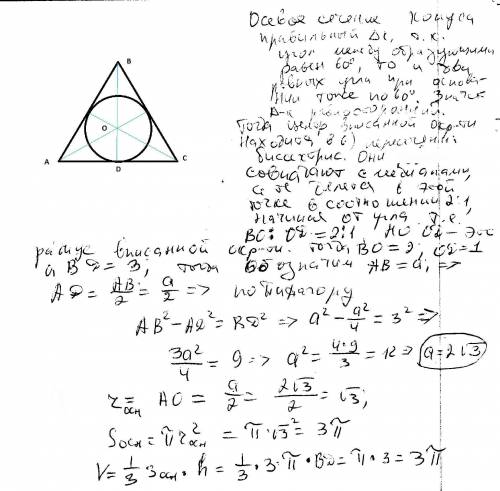 Осевое сечение конуса
правильный Δк, т.к.
угол между образующими
равен 60°, то и два
угла при основа-
нии тоже по 60°, значит
Δ-к равносторонний.
Тогда центр вписанной окр-ти
находится в (·) пересечения
биссектрис. Они
совпадают с медианами,
а те делятся в этой
точке в соотношении 2:1,
начиная от угла. Т.е.,
BO:OD=2:1. НО OD - это
радиус вписанной окр-ти. Тогда BO=2, OD=1
а BD=3, тогда обозначим AB=a, =>
AD = AB/2 = a/2 => по Пифагору
AB² - AD² = BD² => a² - a²/4 = 3² =>
3a²/4 = 9 => a² = 4·9/3 = 12 => a=2√3
r осн = AO = a/2 = 2√3/2 = √3;
Sосн = πr²осн = π·√3² = 3π
V = 1/3 Sосн · h = 1/3 · 3 · π · BD = π·3 = 3π
B
O
A
D
C